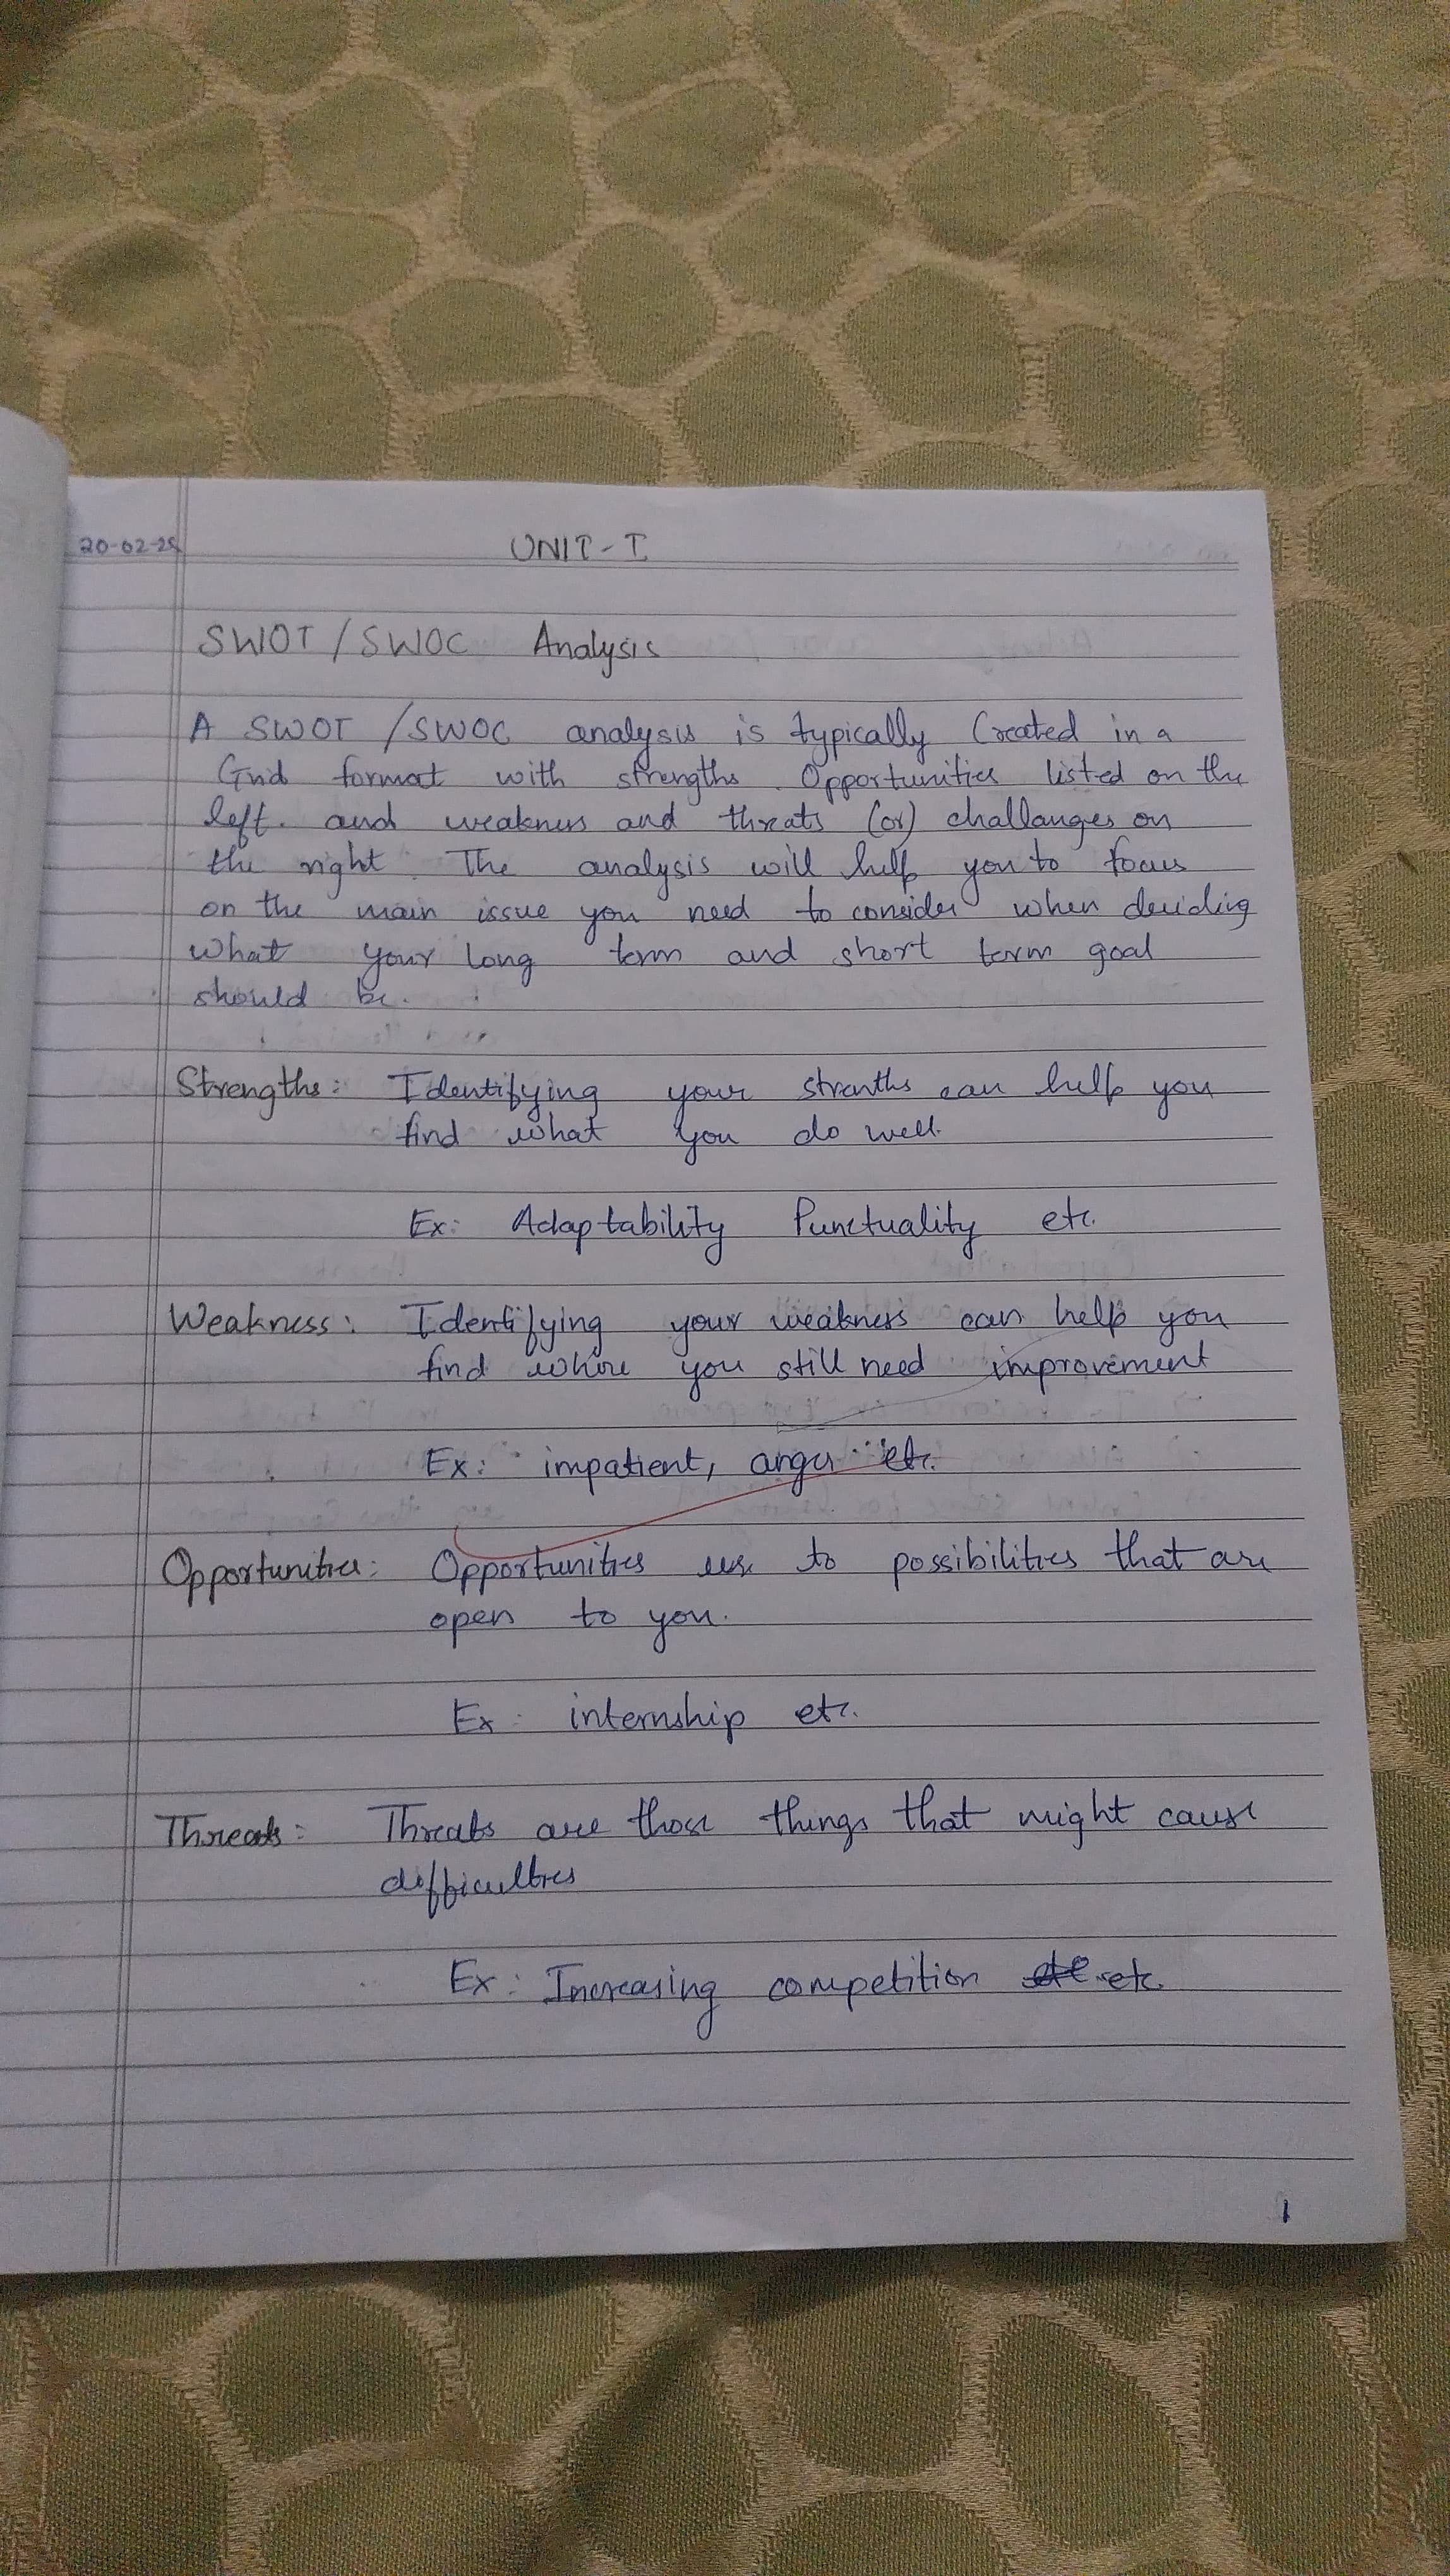 20-02-25
UNIT-I
SWOT/SWOC Analysis
A SWOT /SWOC analysis is typically Created in a
Grid format with strengths. Opportunities listed on the
left. and weakness and threats (or) challanges on
the right. The analysis will help you to focus
on the main issue you need to consider when deciding
what your long term and short term goal
should be.
Strengths: Identifying your strenths can help you
find what you do well.
Ex: Adaptability Punctuality etc.
Weakness: Identifying your weakness can help you
find where you still need improvement
Ex: impatient, anger etc.
Opportunities: Opportunities to possibilities that are
open to you.
Ex: internship etc.
Threats: Threats are those things that might cause
difficulties
Ex: Increasing competition etc.
1